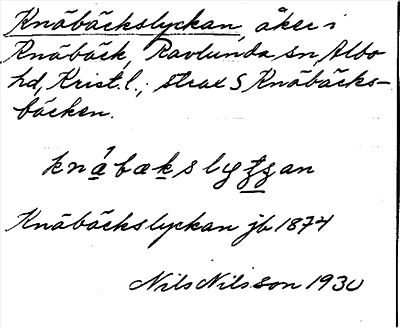 Knäbäckslyckan, åker i
Knäbäck, Ravlunda sn, Albo
hd, Krist. l.; strax S Knäbäcks-
bäcken.
Knäbäckslyckan jb 1874
Nils Nilsson 1930